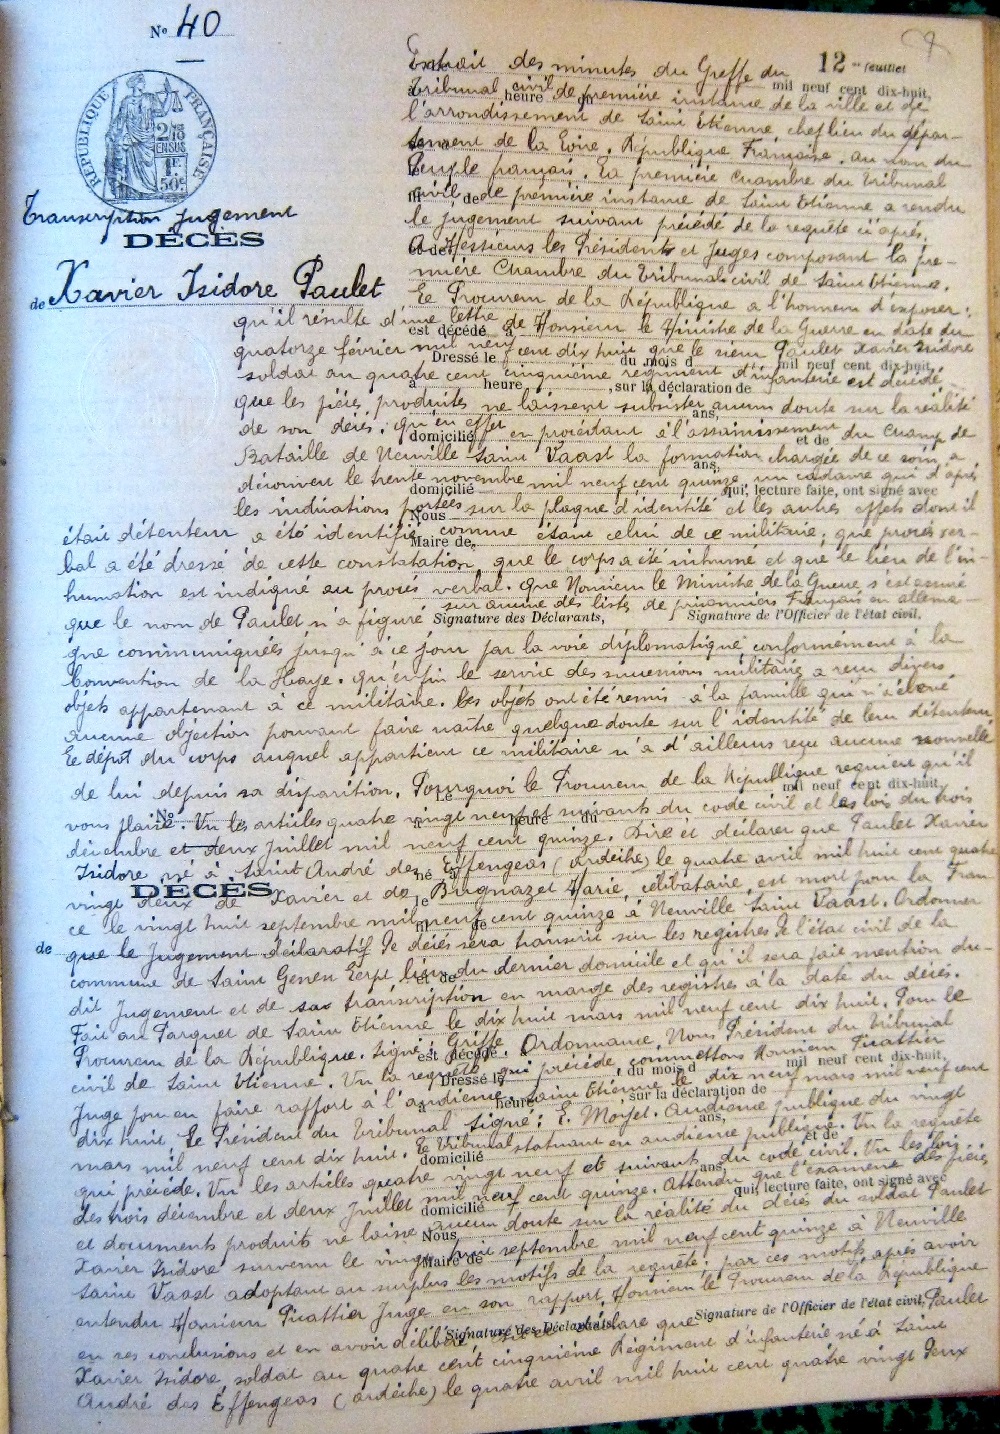 N° 40
12e feuillet
RÉPUBLIQUE FRANÇAISE
2/10 EN SUS
1F. 50c
Transcription Jugement
DÉCÈS
de Xavier Isidore Paulet
Extrait des minutes du Greffe du
Tribunal civil de première instance de la ville et de
l'arrondissement de Saint Etienne, chef lieu du dépar-
tement de la Loire. République Française. au nom du
Peuple français. La première Chambre du Tribunal
civil de première instance de Saint Etienne a rendu
le jugement suivant précédé de la requête ci après.
A Messieurs les Présidents et Juges composant la pre-
mière Chambre du Tribunal civil de Saint Etienne.
Le Procureur de la République a l'honneur d'exposer:
qu'il résulte d'une lettre de Monsieur le Ministre de la Guerre en date du
quatorze février mil neuf cent dix huit que le sieur Paulet Xavier Isidore
soldat au quatre cent cinquième régiment d'infanterie est décédé,
que les pièces produites ne laissent subsister aucun doute sur la réalité
de son décès. qu'en effet en procédant à l'assainissement du Champ de
Bataille de Neuville Saint Vaast la formation chargée de ce soin a
découvert le trente novembre mil neuf cent quinze un cadavre qui d'après
les indications portées sur la plaque d'identité et les autres effets dont il
était détenteur a été identifié comme étant celui de ce militaire; que procès ver-
bal a été dressé de cette constatation, que le corps a été inhumé et que le lieu de l'in-
humation est indiqué au procès verbal. que Monsieur le Ministre de la Guerre s'est assuré
que le nom de Paulet n'a figuré sur aucune des listes de prisonniers Français en allema-
gne communiquées jusqu'à ce jour par la voie diplomatique conformément à la
Convention de la Haye. qu'enfin le service des successions militaires a reçu divers
objets appartenant à ce militaire. Ces objets ont été remis à la famille qui n'a élevé
aucune objection pouvant faire naître quelque doute sur l'identité de leur détenteur.
Le dépôt du corps auquel appartient ce militaire n'a d'ailleurs reçu aucune nouvelle
de lui depuis sa disparition. Pourquoi le Procureur de la République requiert qu'il
vous plaise. Vu les articles quatre vingt neuf et suivants du code civil et les lois du trois
décembre et deux Juillet mil neuf cent quinze. Dire et déclarer que Paulet Xavier
Isidore né à Saint André des Effengeas (Ardèche) le quatre avril mil huit cent quatre
vingt deux de Xavier et de Bugnazet Marie, célibataire, est mort pour la Fran-
ce le vingt huit septembre mil neuf cent quinze à Neuville Saint Vaast. Ordonner
que le Jugement déclaratif de décès sera transcrit sur les registres de l'état civil de la
commune de Saint Genest Lerpt lieu du dernier domicile et qu'il sera fait mention du-
dit Jugement et de sa transcription en marge des registres à la date du décès.
Fait au Parquet de Saint Etienne le dix huit mars mil neuf cent dix huit. Pour le
Procureur de la République. Signé: Griffe. Ordonnance. Nous Président du Tribunal
civil de Saint Etienne. Vu la requête qui précède, commettons Monsieur Picattier
Juge pour en faire rapport à l'audience. Saint Etienne le dix neuf mars mil neuf cent
dix huit Le Président du Tribunal Signé: E. Moyet. Audience publique du vingt
mars mil neuf cent dix huit. Le Tribunal statuant en audience publique. Vu la requête
qui précède. Vu les articles quatre vingt neuf et suivants du code civil. Vu les lois
des trois décembre et deux Juillet mil neuf cent quinze. Attendu que l'examene des pièces
et documents produits ne laisse aucun doute sur la réalité du décès du soldat Paulet
Xavier Isidore survenu le vingt huit septembre mil neuf cent quinze à Neuville
Saint Vaast adoptant au surplus les motifs de la requête; par ces motifs après avoir
entendu Monsieur Picattier Juge en son rapport, Monsieur le Procureur de la République
en ses conclusions et en avoir délibéré, déclare que Paulet
Xavier Isidore, soldat au quatre cent cinquième Régiment d'infanterie né à Saint
André des Effengeas (ardèche) le quatre avril mil huit cent quatre vingt deux
mil neuf cent dix-huit,
heure du
est décédé à
Dressé le
du mois d
mil neuf cent dix-huit,
à
heure
, sur la déclaration de
ans,
domicilié
et de
ans,
domicilié
qui, lecture faite, ont signé avec
Nous
Maire de
Signature des Déclarants,
Signature de l'Officier de l'état civil,
N°
DÉCÈS
de
Le
mil neuf cent dix-huit,
à
heure du
né à
le
fil de
et de
est décédé à
Dressé le
, du mois d
mil neuf cent dix-huit,
à
heure
, sur la déclaration de
ans,
domicilié
et de
ans,
domicilié
qui, lecture faite, ont signé avec
Nous,
Maire de
Signature des Déclarants,
Signature de l'Officier de l'état civil,